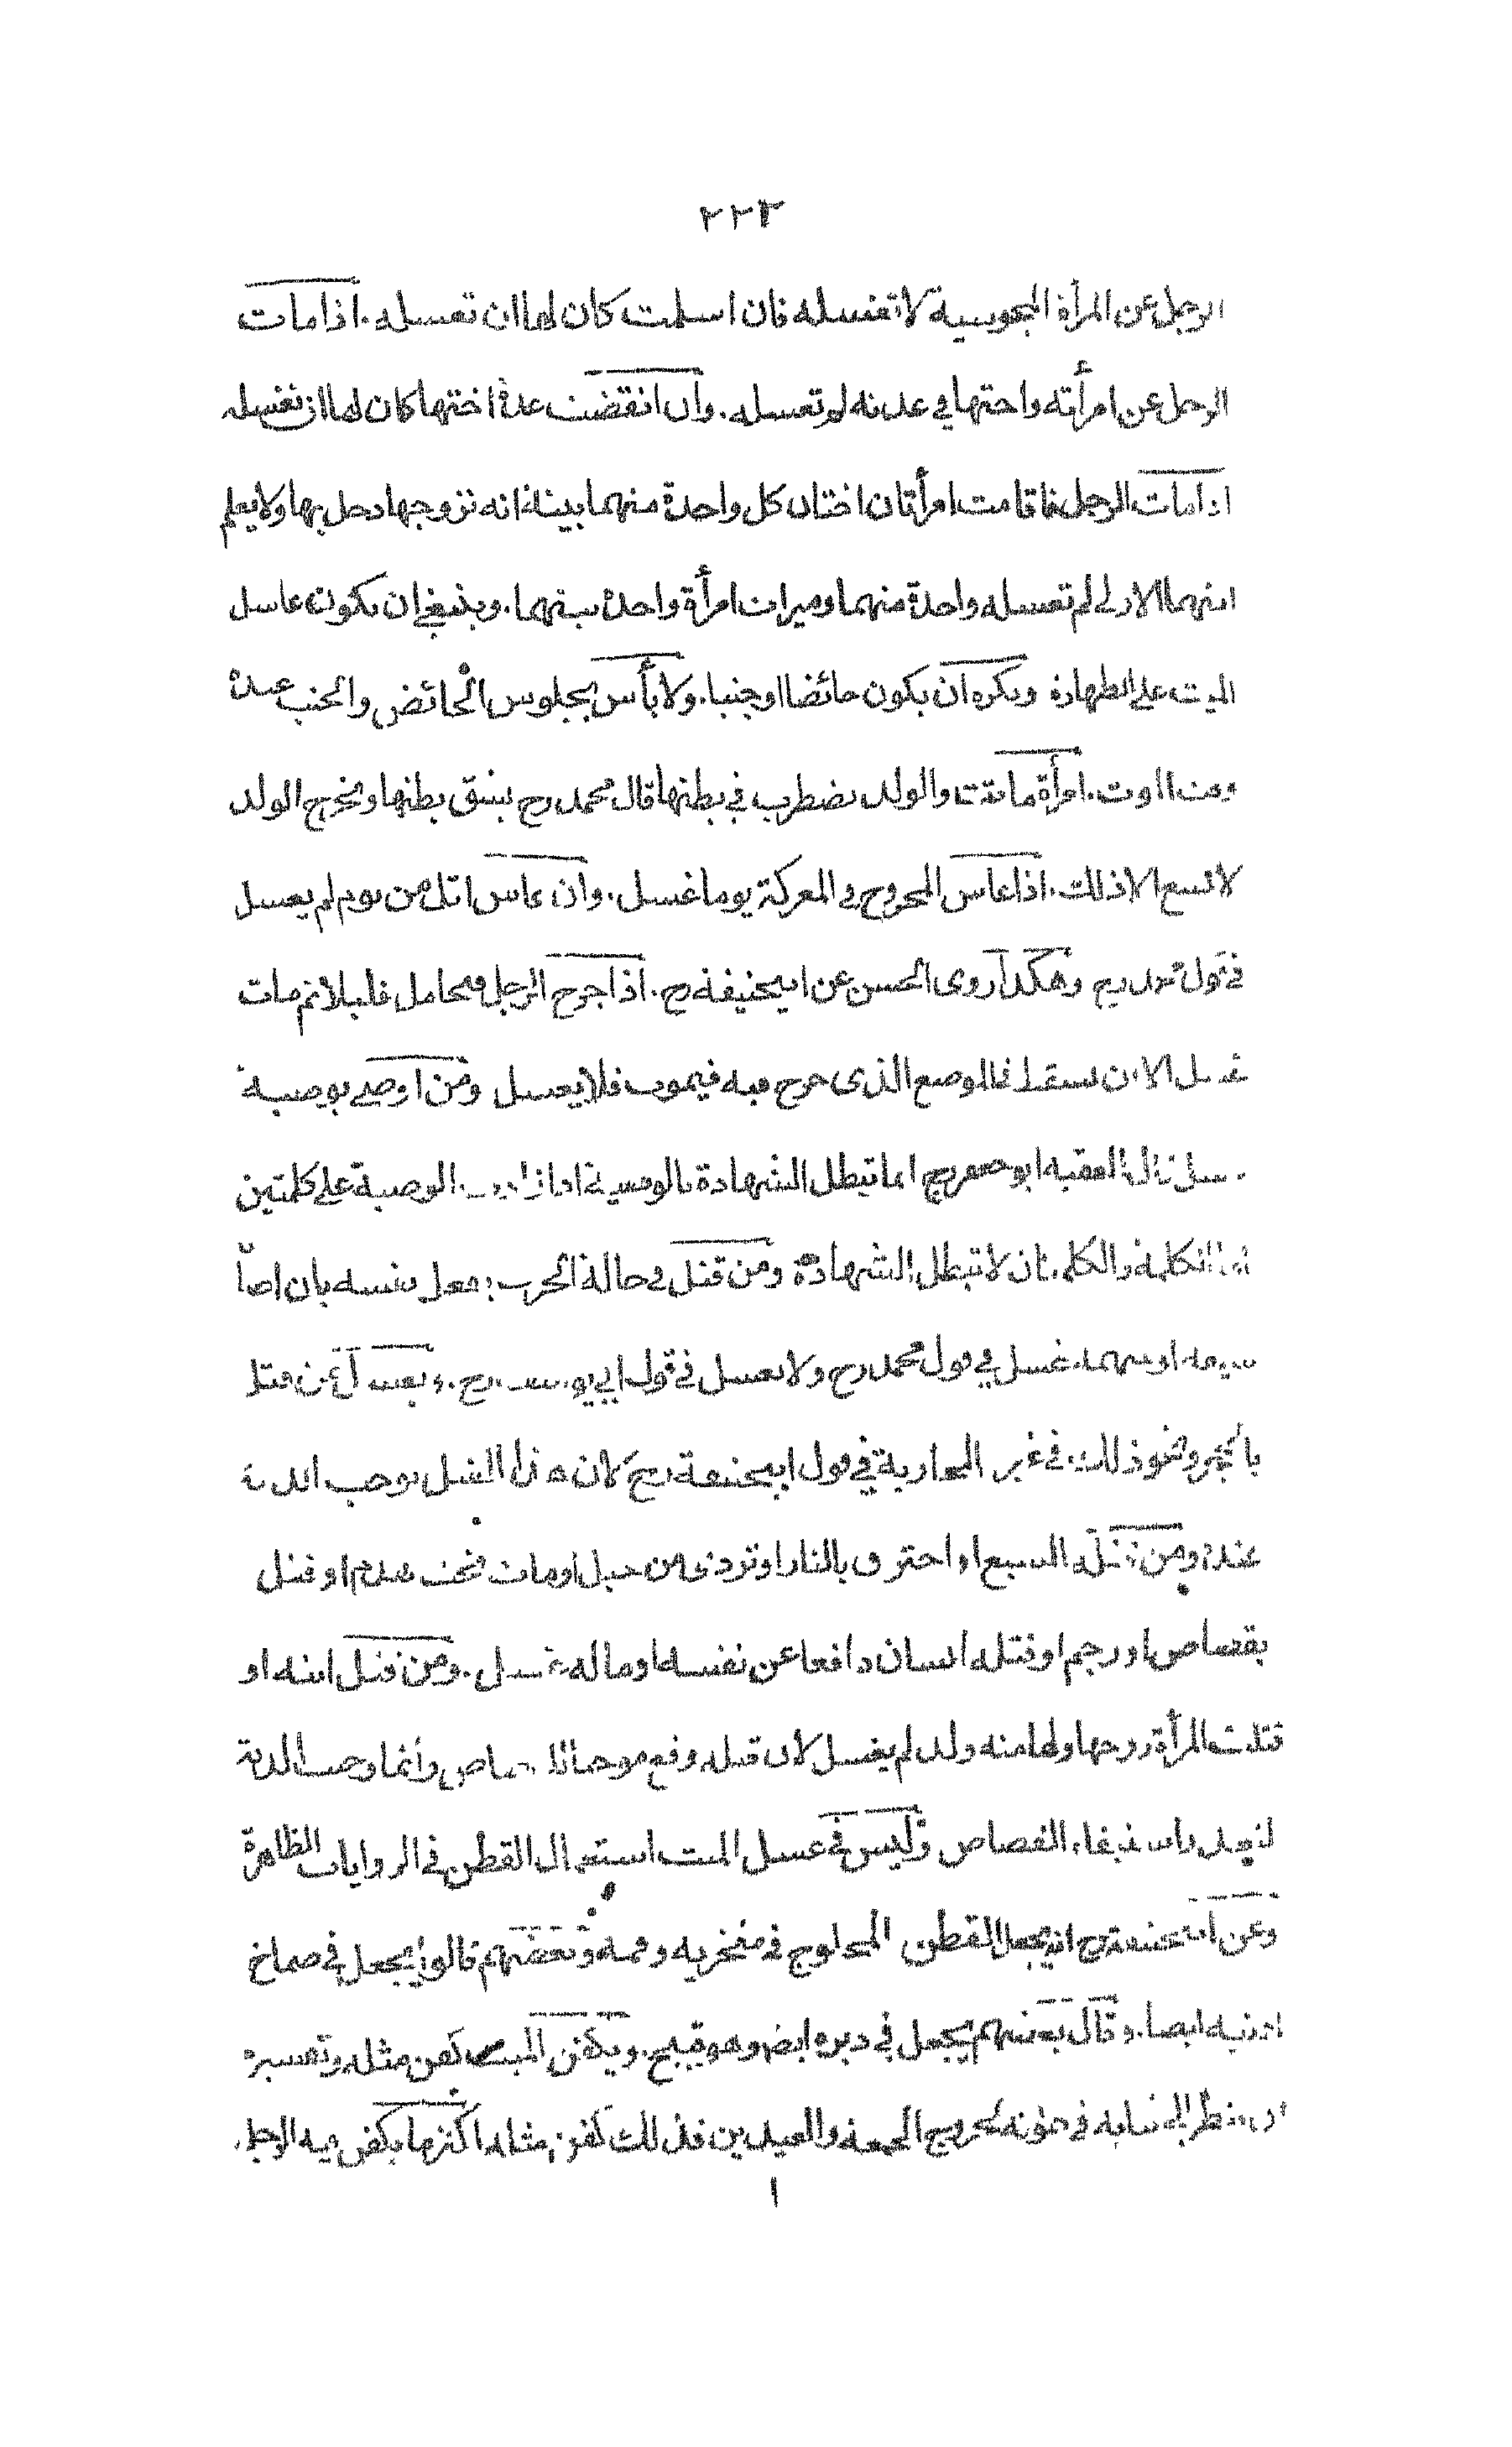 ٢٢٣
الرجل عن المرأة المجوسية لا تغسله فان اسلمت كان لها ان تغسله . اذا مات
الرجل عن امرأته واختها في عدته لم تغسله . وان انقضت عدة اختها كان لها ان تغسله
اذا مات الرجل فاقامت امرأتان اختان كل واحدة منهما بينة انه تزوجها دخل بها ولا يعلم
ايتهما الاولى لم تغسله واحدة منهما وميراث امرأة واحدة بينهما . وينبغي ان يكون غاسل
الميت على الطهارة ويكره ان يكون حائضا او جنبا . ولا بأس بجلوس الحائض والجنب عنده
وقت الموت . امرأة ماتت والولد يضطرب في بطنها قال محمد رح يشق بطنها ويخرج الولد
لا يسع الا ذلك . اذا عاش المجروح في المعركة يوما غسل . وان عاش اقل من يوم لم يغسل
في قول محمد رح وهكذا روى الحسن عن ابيحنيفة رح . اذا جرح الرجل فتحامل قليلا ثم مات
غسل الا ان يسقط في الموضع الذى جرح فيه فيموت فلا يغسل ومن اوصى بوصية
غسل قال الفقيه ابو جعفر رح انما تبطل الشهادة بالوصية اذا زادت الوصية على كلمتين
اما الكلمة والكلمتان لا تبطل الشهادة ومن قتل في حالة الحرب بفعل نفسه بان اصا
سيفه او سهمه غسل في قول محمد رح ولا يغسل في قول ابي يوسف رح . ويغسل من قتل
بالحجر ونحو ذلك في غير المحاربة في قول ابيحنيفة رح لان هذا القتل يوجب الدية
عنده ومن قتله السبع او احترق بالنار او تردى من جبل او مات تحت هدم او قتل
بقصاص او رجم او قتله انسان دافعا عن نفسه او ماله غسل . ومن قتل ابنه او
قتلت المرأة زوجها ولها منه ولد لم يغسل لان قتله وقع موجبا للقصاص وانما وجب الدية
القصاص وليس في غسل الميت استعمال القطن في الروايات الظاهرة
وعن ابيحنيفة رح انه يجعل القطن المحلوج في منخريه وفمه وبعضهم قالوا يجعل في صماخ
اذنيه ايضا . وقال بعضهم يجعل في دبره ايضا وهو قبيح . ويكفن الميت كفن مثله وتفسيره
ان ينظر الى ثيابه في حيوته لخروج الجمعة والعيدين فذلك كفن مثله اكثرها يكفن فيه الرجل
ا